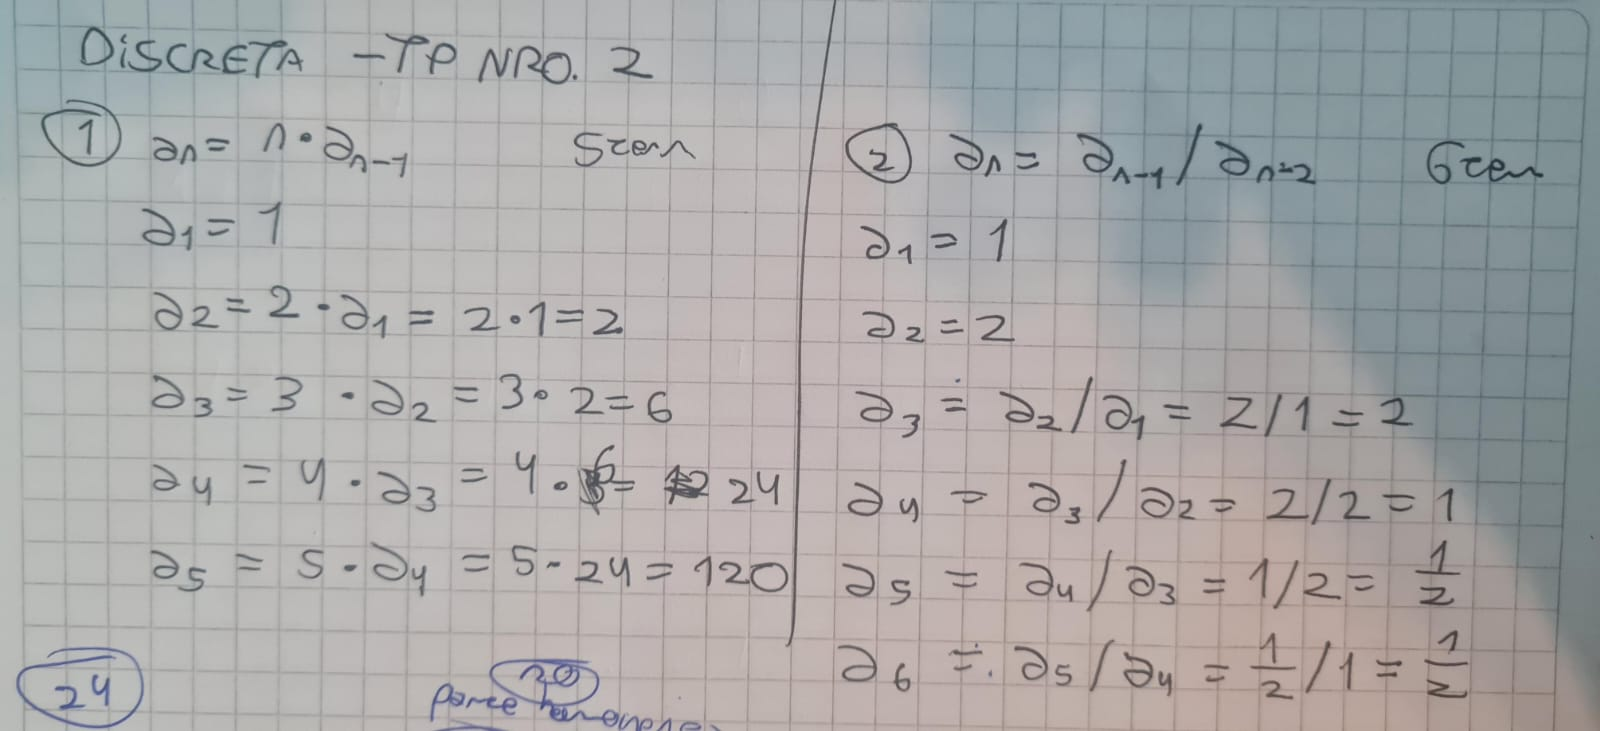 DISCRETA - TP NRO. 2
① an = n · an-1
a1 = 1
a2 = 2 · a1 = 2 · 1 = 2
a3 = 3 · a2 = 3 · 2 = 6
a4 = 4 · a3 = 4 · 6 = 24
a5 = 5 · a4 = 5 · 24 = 120
24
② an = an-1 / an-2
a1 = 1
a2 = 2
a3 = a2 / a1 = 2/1 = 2
a4 = a3 / a2 = 2/2 = 1
a5 = a4 / a3 = 1/2 = 1/2
a6 = a5 / a4 = 1/2 / 1 = 1/2